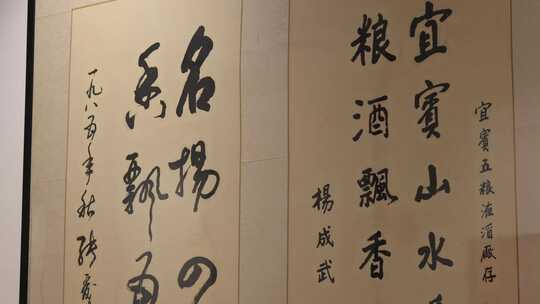 宜賓五粮液酒廠存
宜賓山水
粮酒飄香
楊成武
名揚四
香飄
一九八五年秋